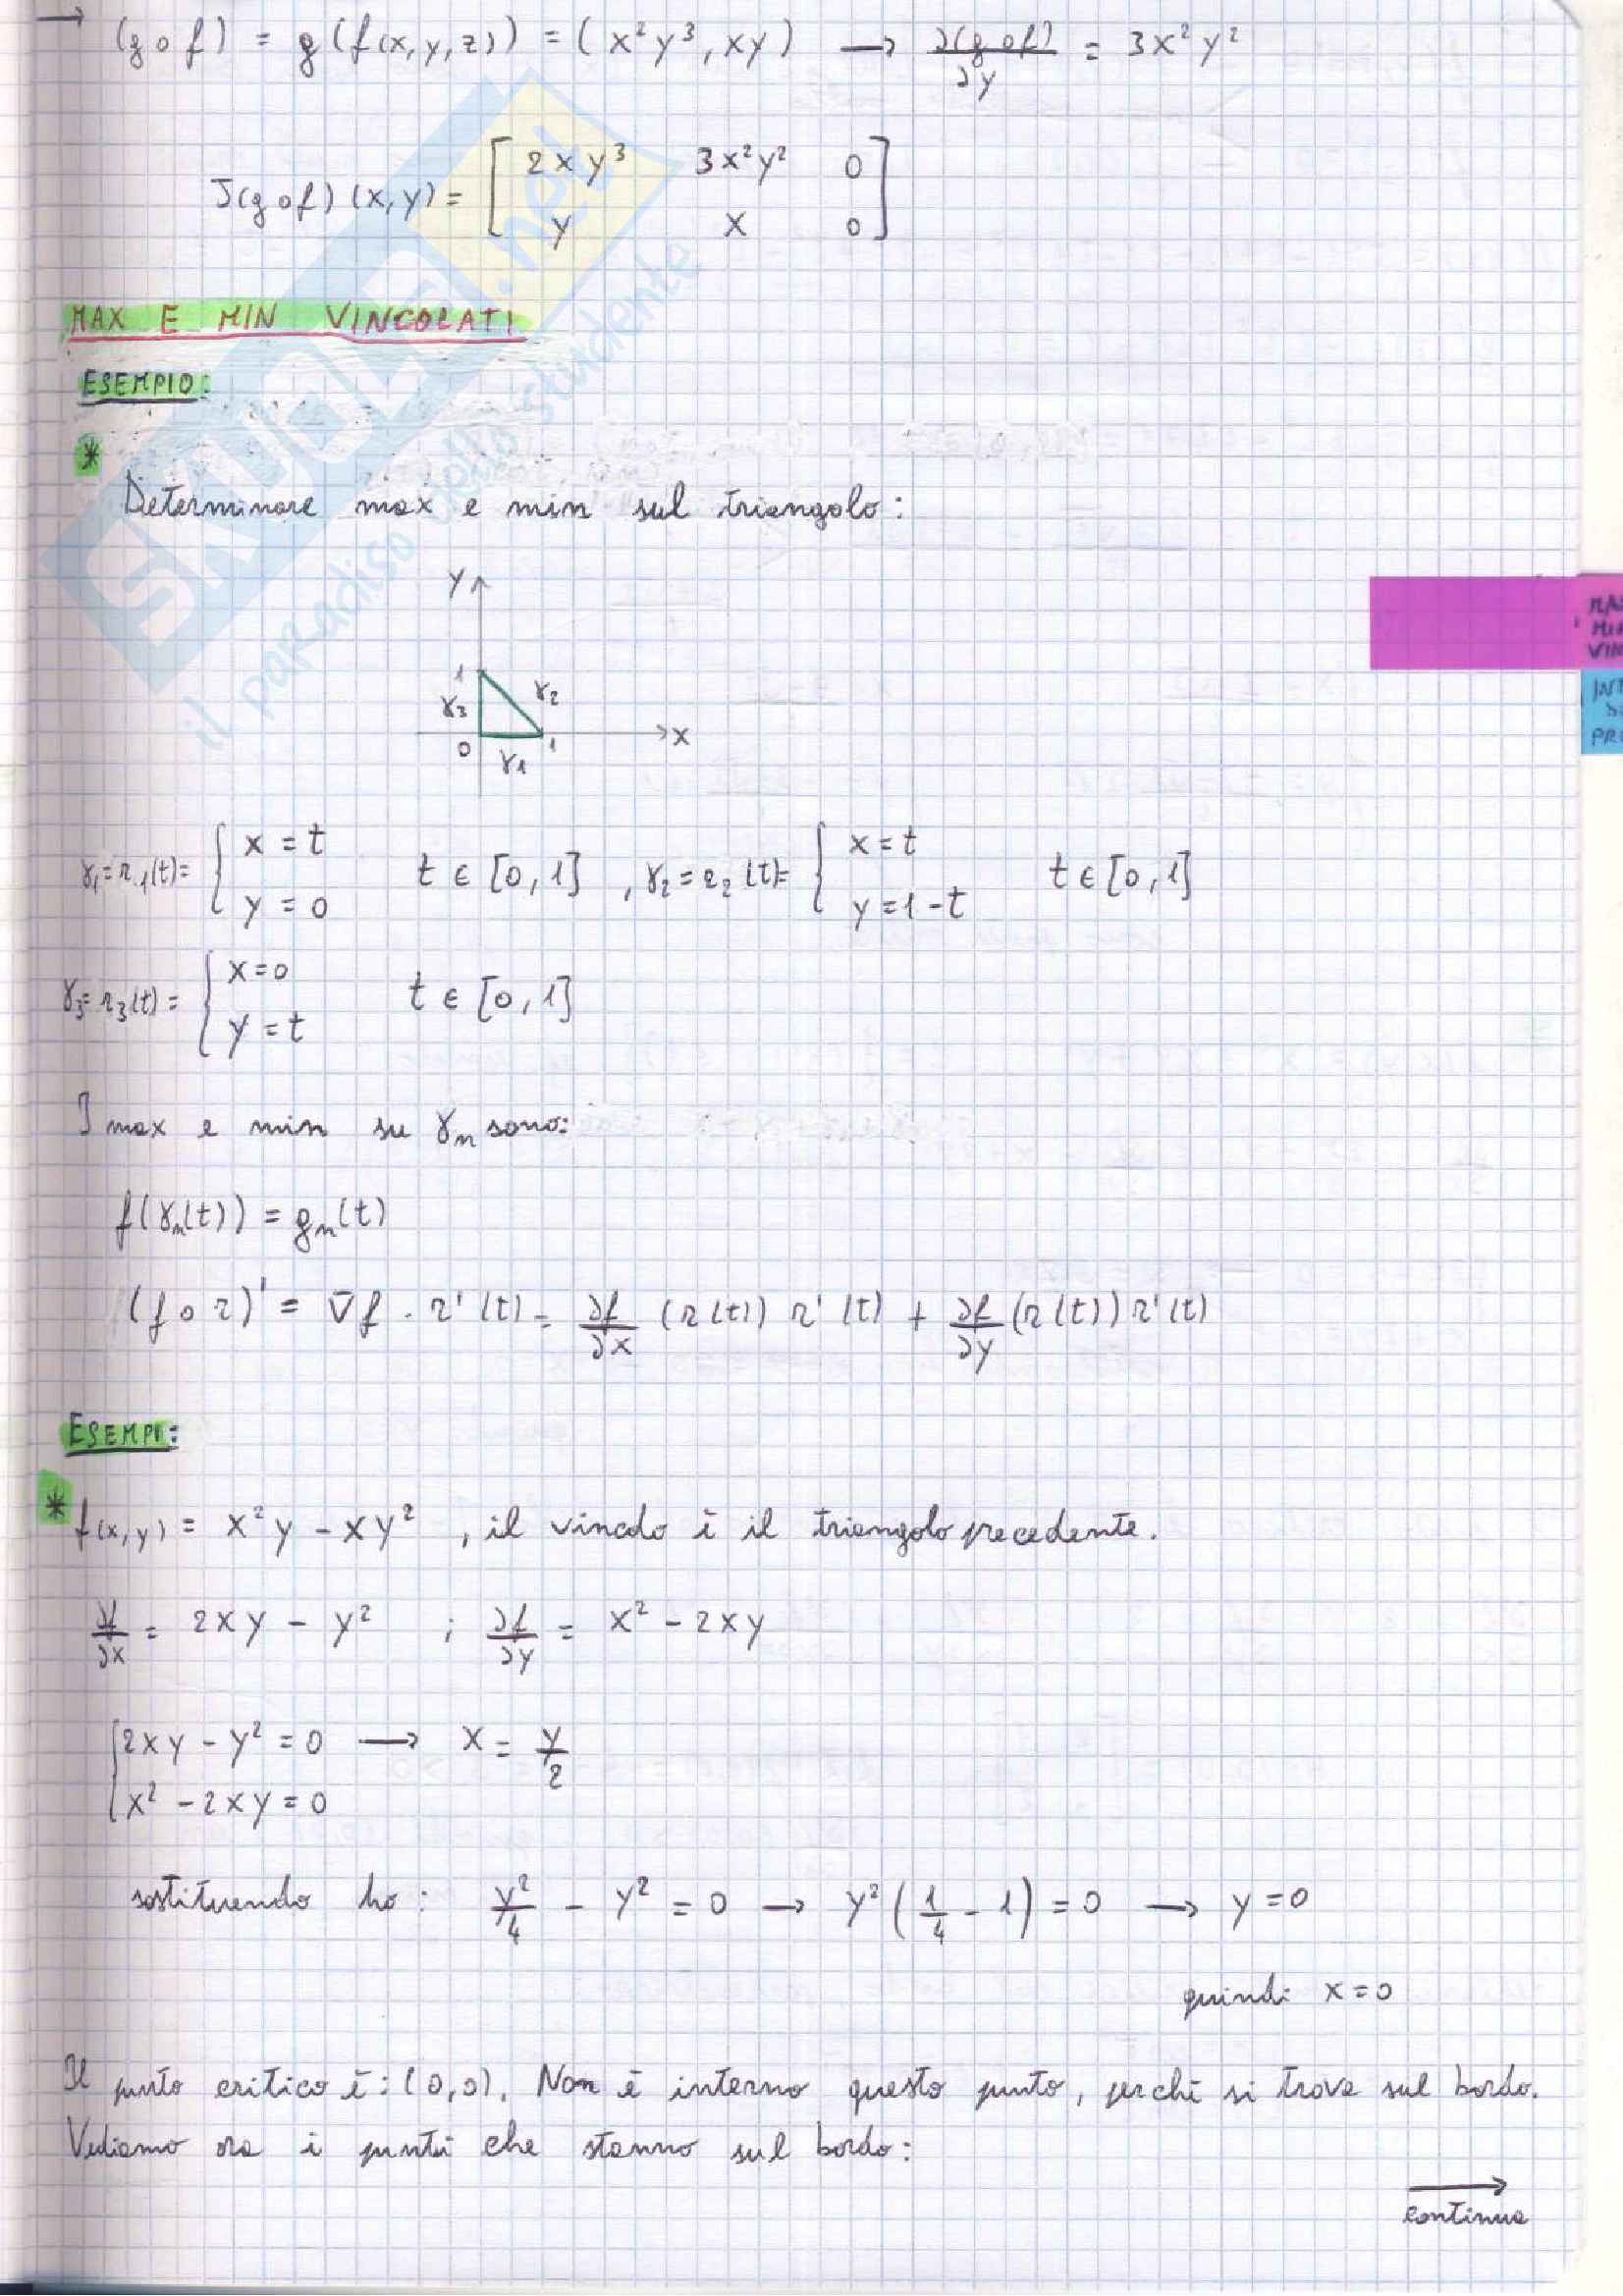 → (g o f) = g(f(x,y,z)) = (x²y³, xy) → ∂(g o f)/∂y = 3x²y²
J(g o f)(x,y) = [ 2xy³ 3x²y² 0
y x 0 ]
MAX E MIN VINCOLATI
ESEMPIO:
*
Determinare max e min sul triangolo:
y
1
γ3
γ2
0
γ1
1
x
γ1 = r1(t) = { x = t
y = 0 t ∈ [0,1] , γ2 = r2(t) = { x = t
y = 1-t t ∈ [0,1]
γ3 = r3(t) = { x = 0
y = t t ∈ [0,1]
I max e min su γn sono:
f(γn(t)) = gn(t)
(f o r)' = ∇f · r'(t) = ∂f/∂x (r(t)) r'(t) + ∂f/∂y (r(t)) r'(t)
ESEMPI:
* f(x,y) = x²y - xy² , il vincolo è il triangolo precedente.
∂f/∂x = 2xy - y² ; ∂f/∂y = x² - 2xy
{ 2xy - y² = 0 → x = y/2
x² - 2xy = 0
sostituendo ho: y²/4 - y² = 0 → y²(1/4 - 1) = 0 → y = 0
quindi x = 0
Il punto critico è: (0,0). Non è interno questo punto, perché si trova sul bordo.
Vediamo ora i punti che stanno sul bordo:
→
continua
SKUOLA.net
il paradiso dello studente
MAX
MIN
VIN
INT
PR